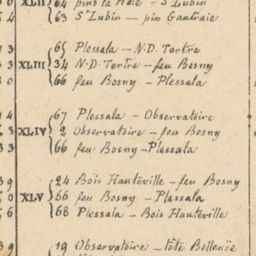 0 XLII 64 pins la Haie - St Lubin
4 63 St Lubin - pin Gautraie
3 65 Plessala - N.D. Tertre
3 XLIII 34 N.D. Tertre - feu Bosny
0 66 feu Bosny - Plessala
4 67 Plessala - Observatoire
3 XLIV 2 Observatoire - feu Bosny
3 66 feu Bosny - Plessala
9 24 Bois Hauteville - feu Bosny
0 XLV 66 feu Bosny - Plessala
6 68 Plessala - Bois Hauteville
9 19 Observatoire - tête Bellenoë